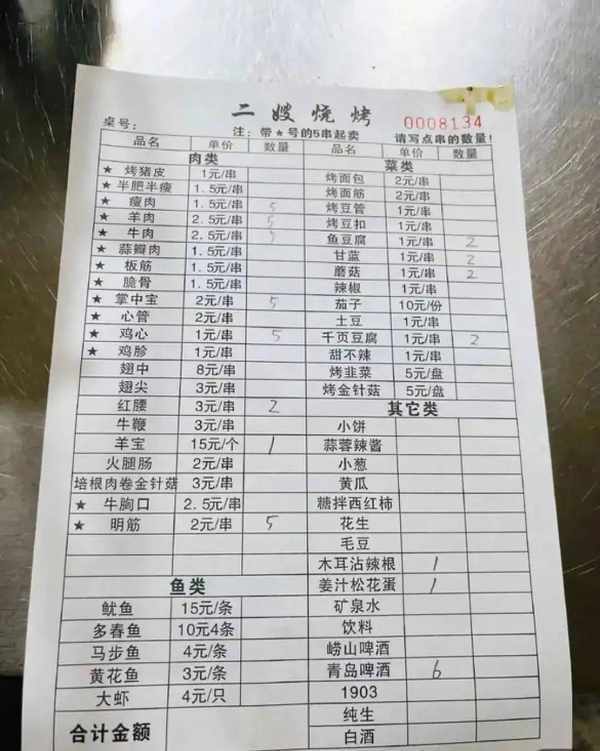 二嫂烧烤
0008134
桌号：
注：带★号的5串起卖
请写点串的数量！
品名 单价 数量 品名 单价 数量
肉类 菜类
★ 烤猪皮 1元/串 烤面包 2元/串
★ 半肥半瘦 1.5元/串 烤面筋 2元/串
★ 瘦肉 1.5元/串 5 烤豆管 1元/串
★ 羊肉 2.5元/串 5 烤豆扣 1元/串
★ 牛肉 2.5元/串 鱼豆腐 1元/串 2
★ 蒜瓣肉 1.5元/串 甘蓝 1元/串 2
★ 板筋 1.5元/串 蘑菇 1元/串 2
★ 脆骨 1.5元/串 辣椒 1元/串
★ 掌中宝 2元/串 5 茄子 10元/份
★ 心管 2元/串 土豆 1元/串
★ 鸡心 1元/串 5 千页豆腐 1元/串 2
★ 鸡胗 1元/串 甜不辣 1元/串
翅中 8元/串 烤韭菜 5元/盘
翅尖 3元/串 烤金针菇 5元/盘
红腰 3元/串 2 其它类
牛鞭 3元/串 小饼
羊宝 15元/个 1 蒜蓉辣酱
火腿肠 2元/串 小葱
培根肉卷金针菇 3元/串 黄瓜
★ 牛胸口 2.5元/串 糖拌西红柿
★ 明筋 2元/串 5 花生
毛豆
木耳沾辣根 1
鱼类 姜汁松花蛋 1
鱿鱼 15元/条 矿泉水
多春鱼 10元4条 饮料
马步鱼 4元/条 崂山啤酒
黄花鱼 3元/条 青岛啤酒 6
大虾 4元/只 1903
合计金额 纯生
白酒